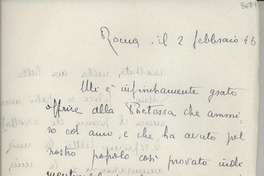 Roma, il 2 febbraio 46
Mi è infinitamente grato
offrire alla Poetessa che ammi
ro ed amo, e che ha avuto pel
nostro popolo così provato